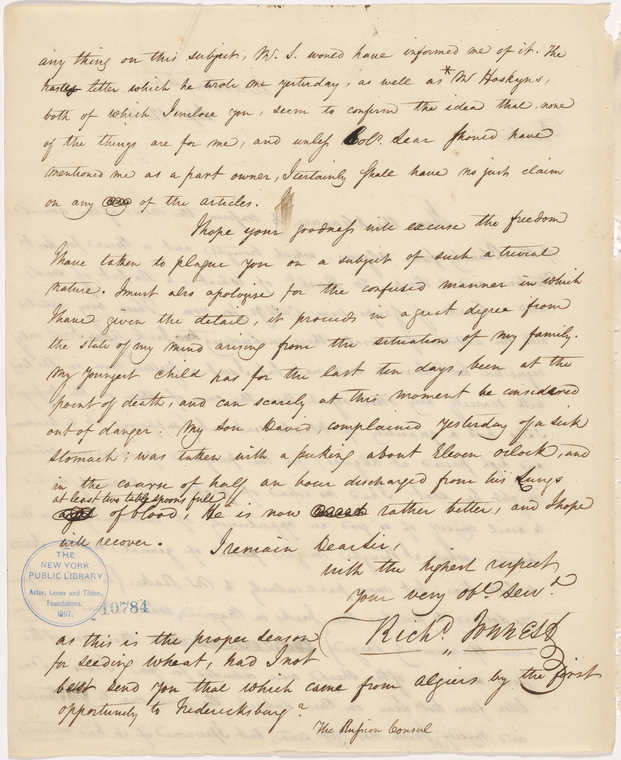 any thing on this subject, Mr. S. would have informed me of it. The
hasty letter which he wrote me yesterday, as well as * Mr Hoskyns,
both of which I inclose you, seem to confirm the idea that, none
of the things are for me, and unless Col. Lear should have
mentioned me as a part owner, I certainly shall have no just claim
on any of the articles.
I hope your goodness will excuse the freedom
I have taken to plague you on a subject of such a trivial
nature. I must also apologise for the confused manner in which
I have given the detail, it proceeds in a great degree from
the state of my mind arising from the situation of my family.
My youngest child has for the last ten days, been at the
point of death, and can scarcely at this moment be considered
out of danger. My son David complained yesterday of a sick
stomach; was taken with a puking about Eleven oclock, and
in the course of half an hour discharged from his Lungs
at least two table spoons full
of blood; He is now rather better, and I hope
will recover. I remain Dear Sir,
with the highest respect
Your very obt. Servt.
Richd. 
as this is the proper season
for seeding wheat, had I not
best send you that which came from Algiers by the first
opportunity to Fredericksburg?
The Russian Consul
THE
NEW YORK
PUBLIC LIBRARY
Astor, Lenox and Tilden,
Foundations.
1897.
40784